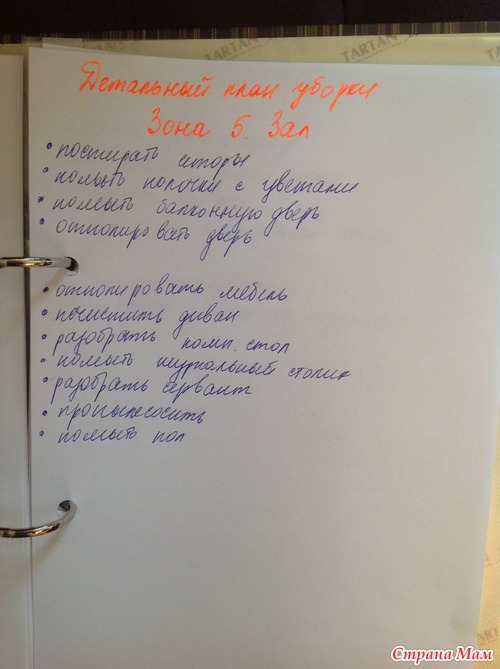 TARTAN
TARTAN
Детальный план уборки
Зона 5. Зал
• постирать шторы
• помыть полочки с цветами
• помыть балконную дверь
• отполировать дверь
• отполировать мебель
• почистить диван
• разобрать комп. стол
• помыть журнальный столик
• разобрать сервант
• пропылесосить
• помыть пол
Страна Мам